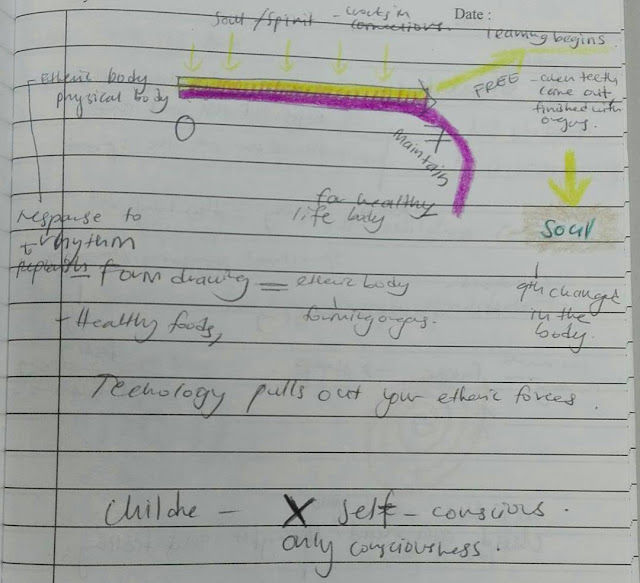 Soul / Spirit - works in
connections.
Date :
learning begins.
- Etheric body
physical body
FREE
- when teeth
come out,
finished with
organs.
0
7
maintain
for healthy
life body
Soul
response to
rhythm
- form drawing = etheric body
forming organs.
9th change
in the
body.
- Healthy foods,
Techology pulls out your etheric forces.
Childe - X self - conscious.
only consciousness.